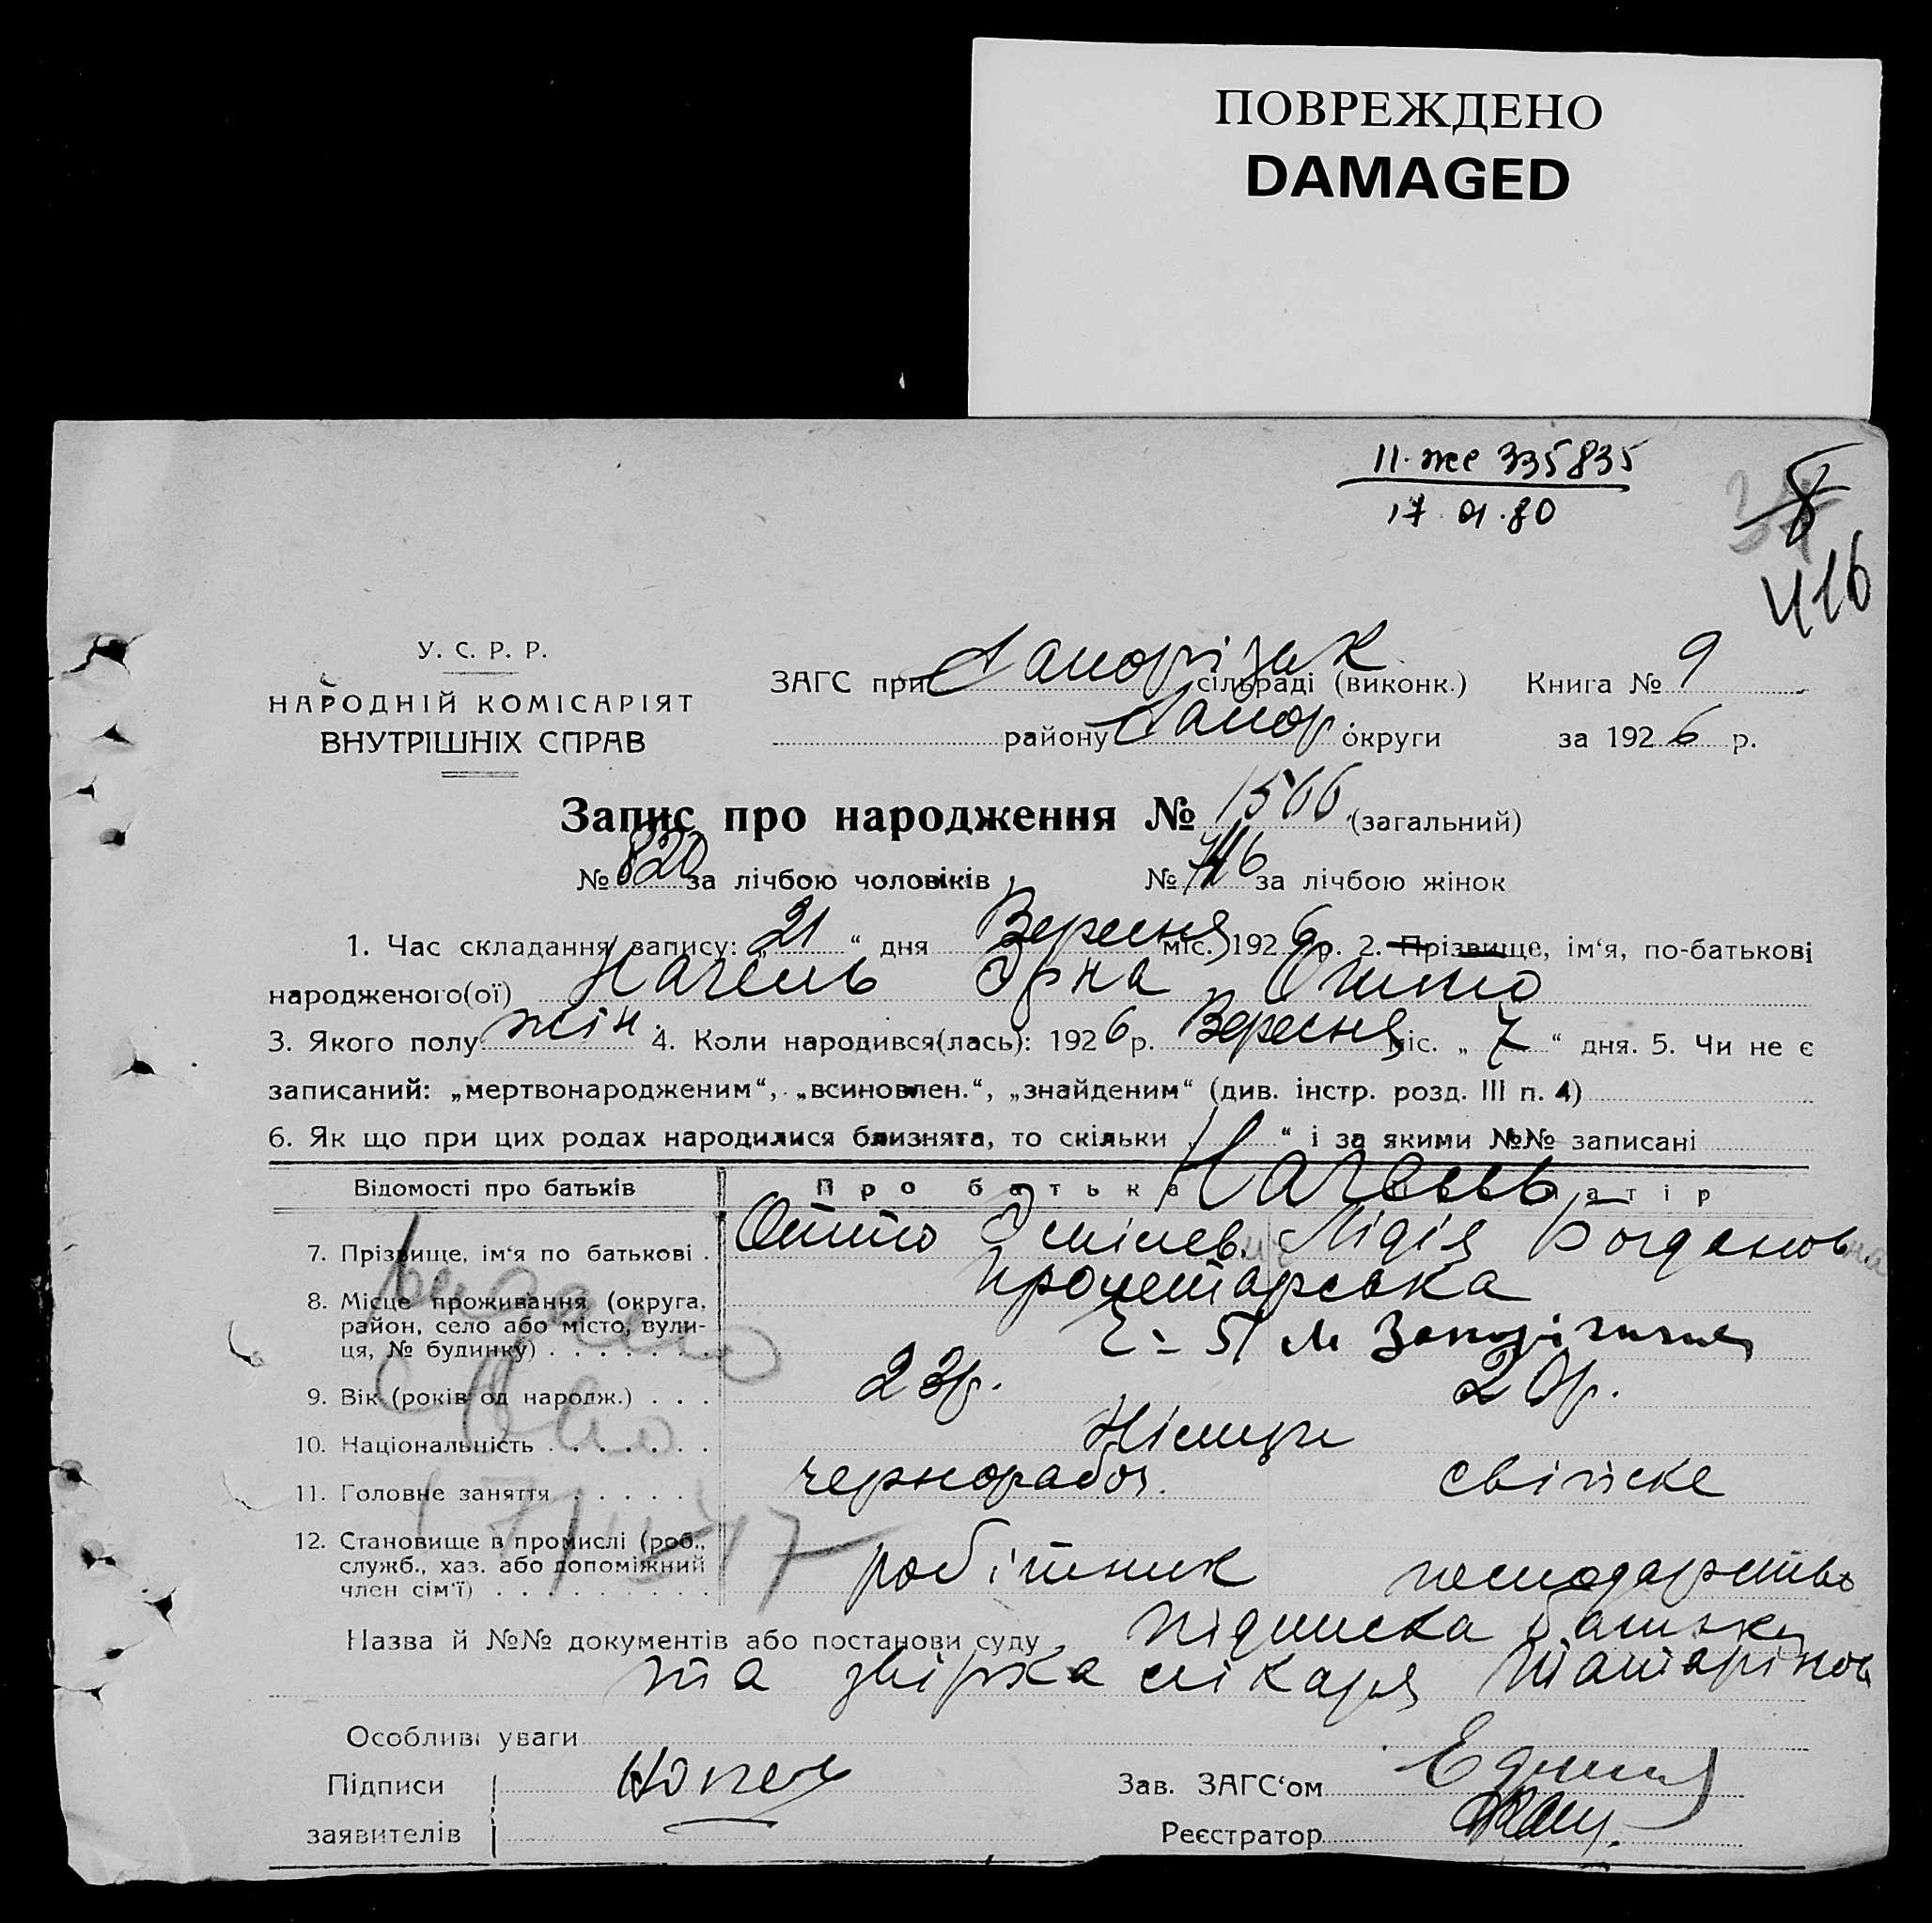 ПОВРЕЖДЕНО
DAMAGED
335835
17.01.80
416
У. С. Р. Р.
НАРОДНІЙ КОМІСАРІЯТ
ВНУТРІШНІХ СПРАВ
ЗАГС при Запоріжк сільраді (виконк.) Книга № 9
району Запор округи за 1926 р.
Запис про народження № 1566 (загальний)
№ 820 за лічбою чоловіків № 746 за лічбою жінок
1. Час складання запису: „21“ дня Вересня міс. 1926 р. 2. Прізвище, ім‘я, по-батькові
народженого(ої) Нагель Эрна Отто
3. Якого полу жін. 4. Коли народився(лась): 1926 р. Вересня міс. „7“ дня. 5. Чи не є
записаний: „мертвонародженим“, „всиновлен.“, „знайденим“ (див. інстр. розд. III п. 4)
6. Як що при цих родах народилися близнята, то скільки „ “ і за якими №№ записані
Відомості про батьків Про батька матір
Нагель
7. Прізвище, ім‘я по батькові . Отто Эмілев. Лідія Богданов
8. Місце проживання (округа, район, село або місто, вулиця, № будинку) . . . . . . Пролетарська
51 м Запоріжжя
9. Вік (років од народж.) . . . 23р. 20р.
10. Національність . . . . . . . Німці
11. Головне заняття . . . . . чернорабоч. свійске
12. Становище в промислі (роб., служб., хаз. або допоміжний член сім‘ї) . . . . . . . . . робітник господарство
Видано
17/II-47
Назва й №№ документів або постанови суду підписка батька
та звірка лікаря Татарінов
Особливі уваги
Підписи
заявителів
Зав. ЗАГС‘ом
Реєстратор